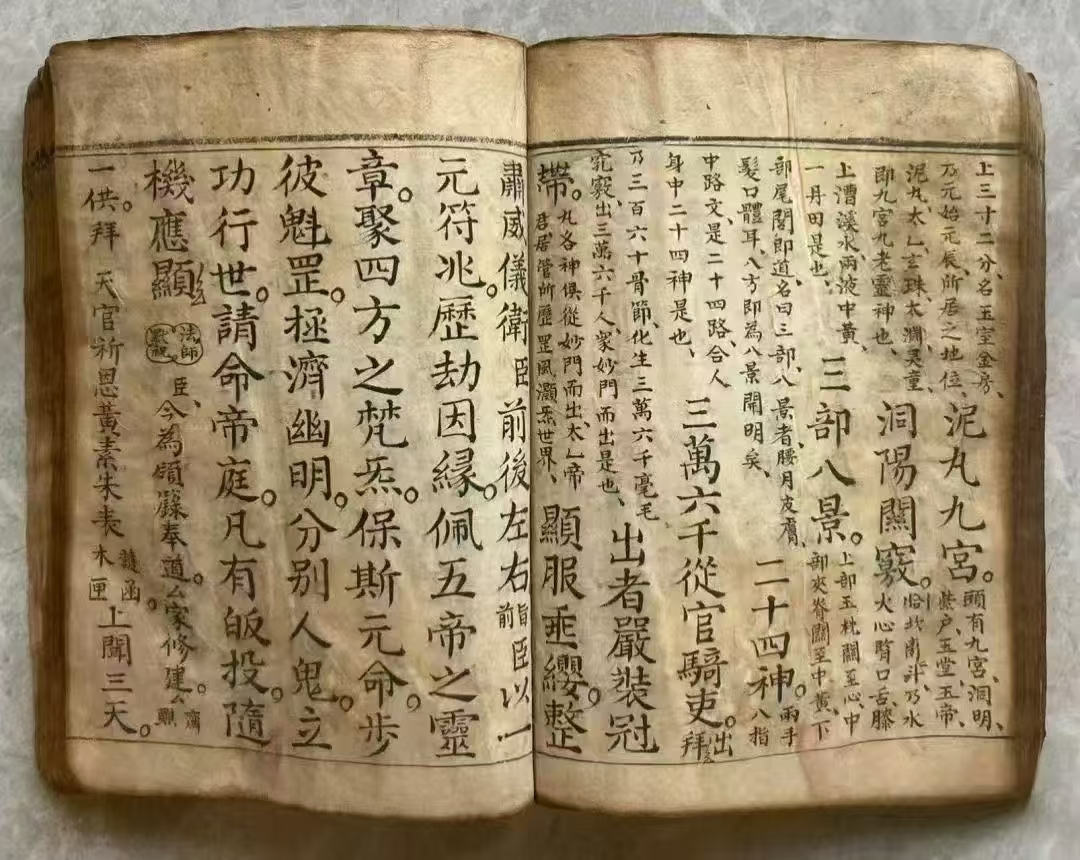 上三寸二分、名玉室金房、
乃元始元辰、所居之地位、泥丸九宮。頭有九宮、洞明、
泥丸、太乙、玄珠、太淵、灵童、洞陽關竅。紫户、玉堂、五帝、
即九宮九老靈神也、心胷口舌、膝
上漕溪水、兩液中黄、三部八景。上部玉枕關至心、中
一丹田是也、部夾脊關至中黄、下
部尾閭即道、名曰三部、八景者、腰月皮膚、二十四神。兩手
髮口體耳、八方即為八景開明矣、八指
中路文、是二十四路、合人三萬六千從官騎吏。出
身中二十四神是也、拜
乃三百六十骨節、化生三萬六千毫毛出者嚴裝冠
窕竅、出三萬六千人、衆妙門而出是也、
帶。九各神俱從妙門而出、太乙帝顯服垂纓。整
君居管所歷罡風灝炁世界、
肅威儀衛臣前後左右臣以一
元符兆。歷劫因緣。佩五帝之靈
章。聚四方之梵炁。保斯元命。步
彼魁罡。拯濟幽明。分别人鬼。立
功行世。請命帝庭。凡有皈投。隨
機應顯 法師 臣、今為領籙奉道。厶家修建。厶齋
一供拜 天官祈恩黄素朱表 木匣 謹函。上聞三天。